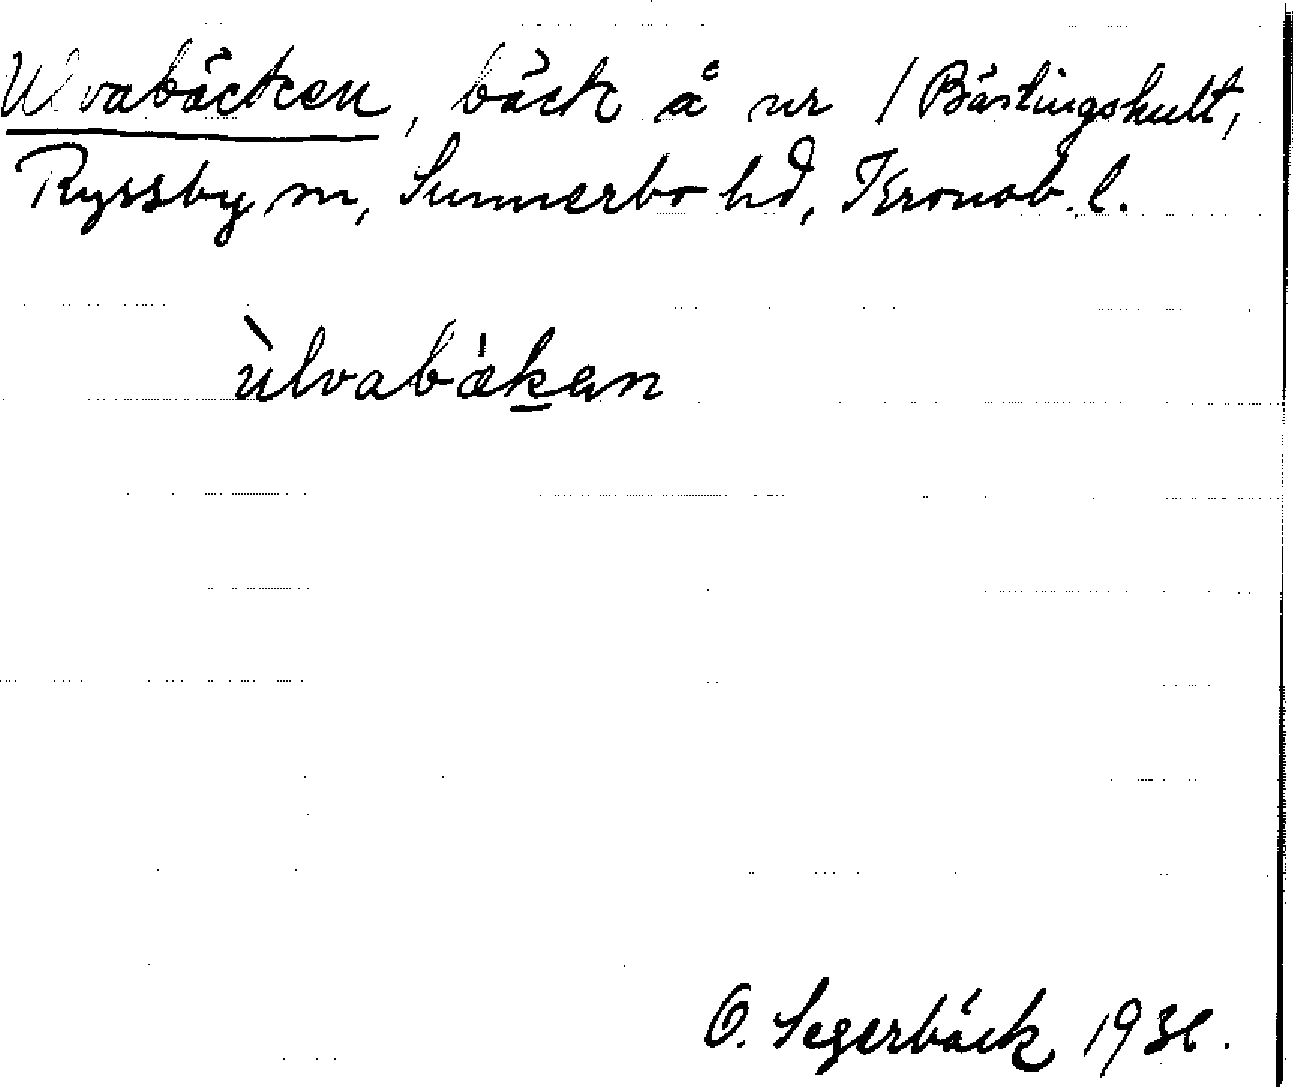 Ulvabäcken, bäck å ur / Bästingshult,
Ryssby sn, Sunnerbo hd, Kronob. l.
ùlvabäkan
O. Segerbäck